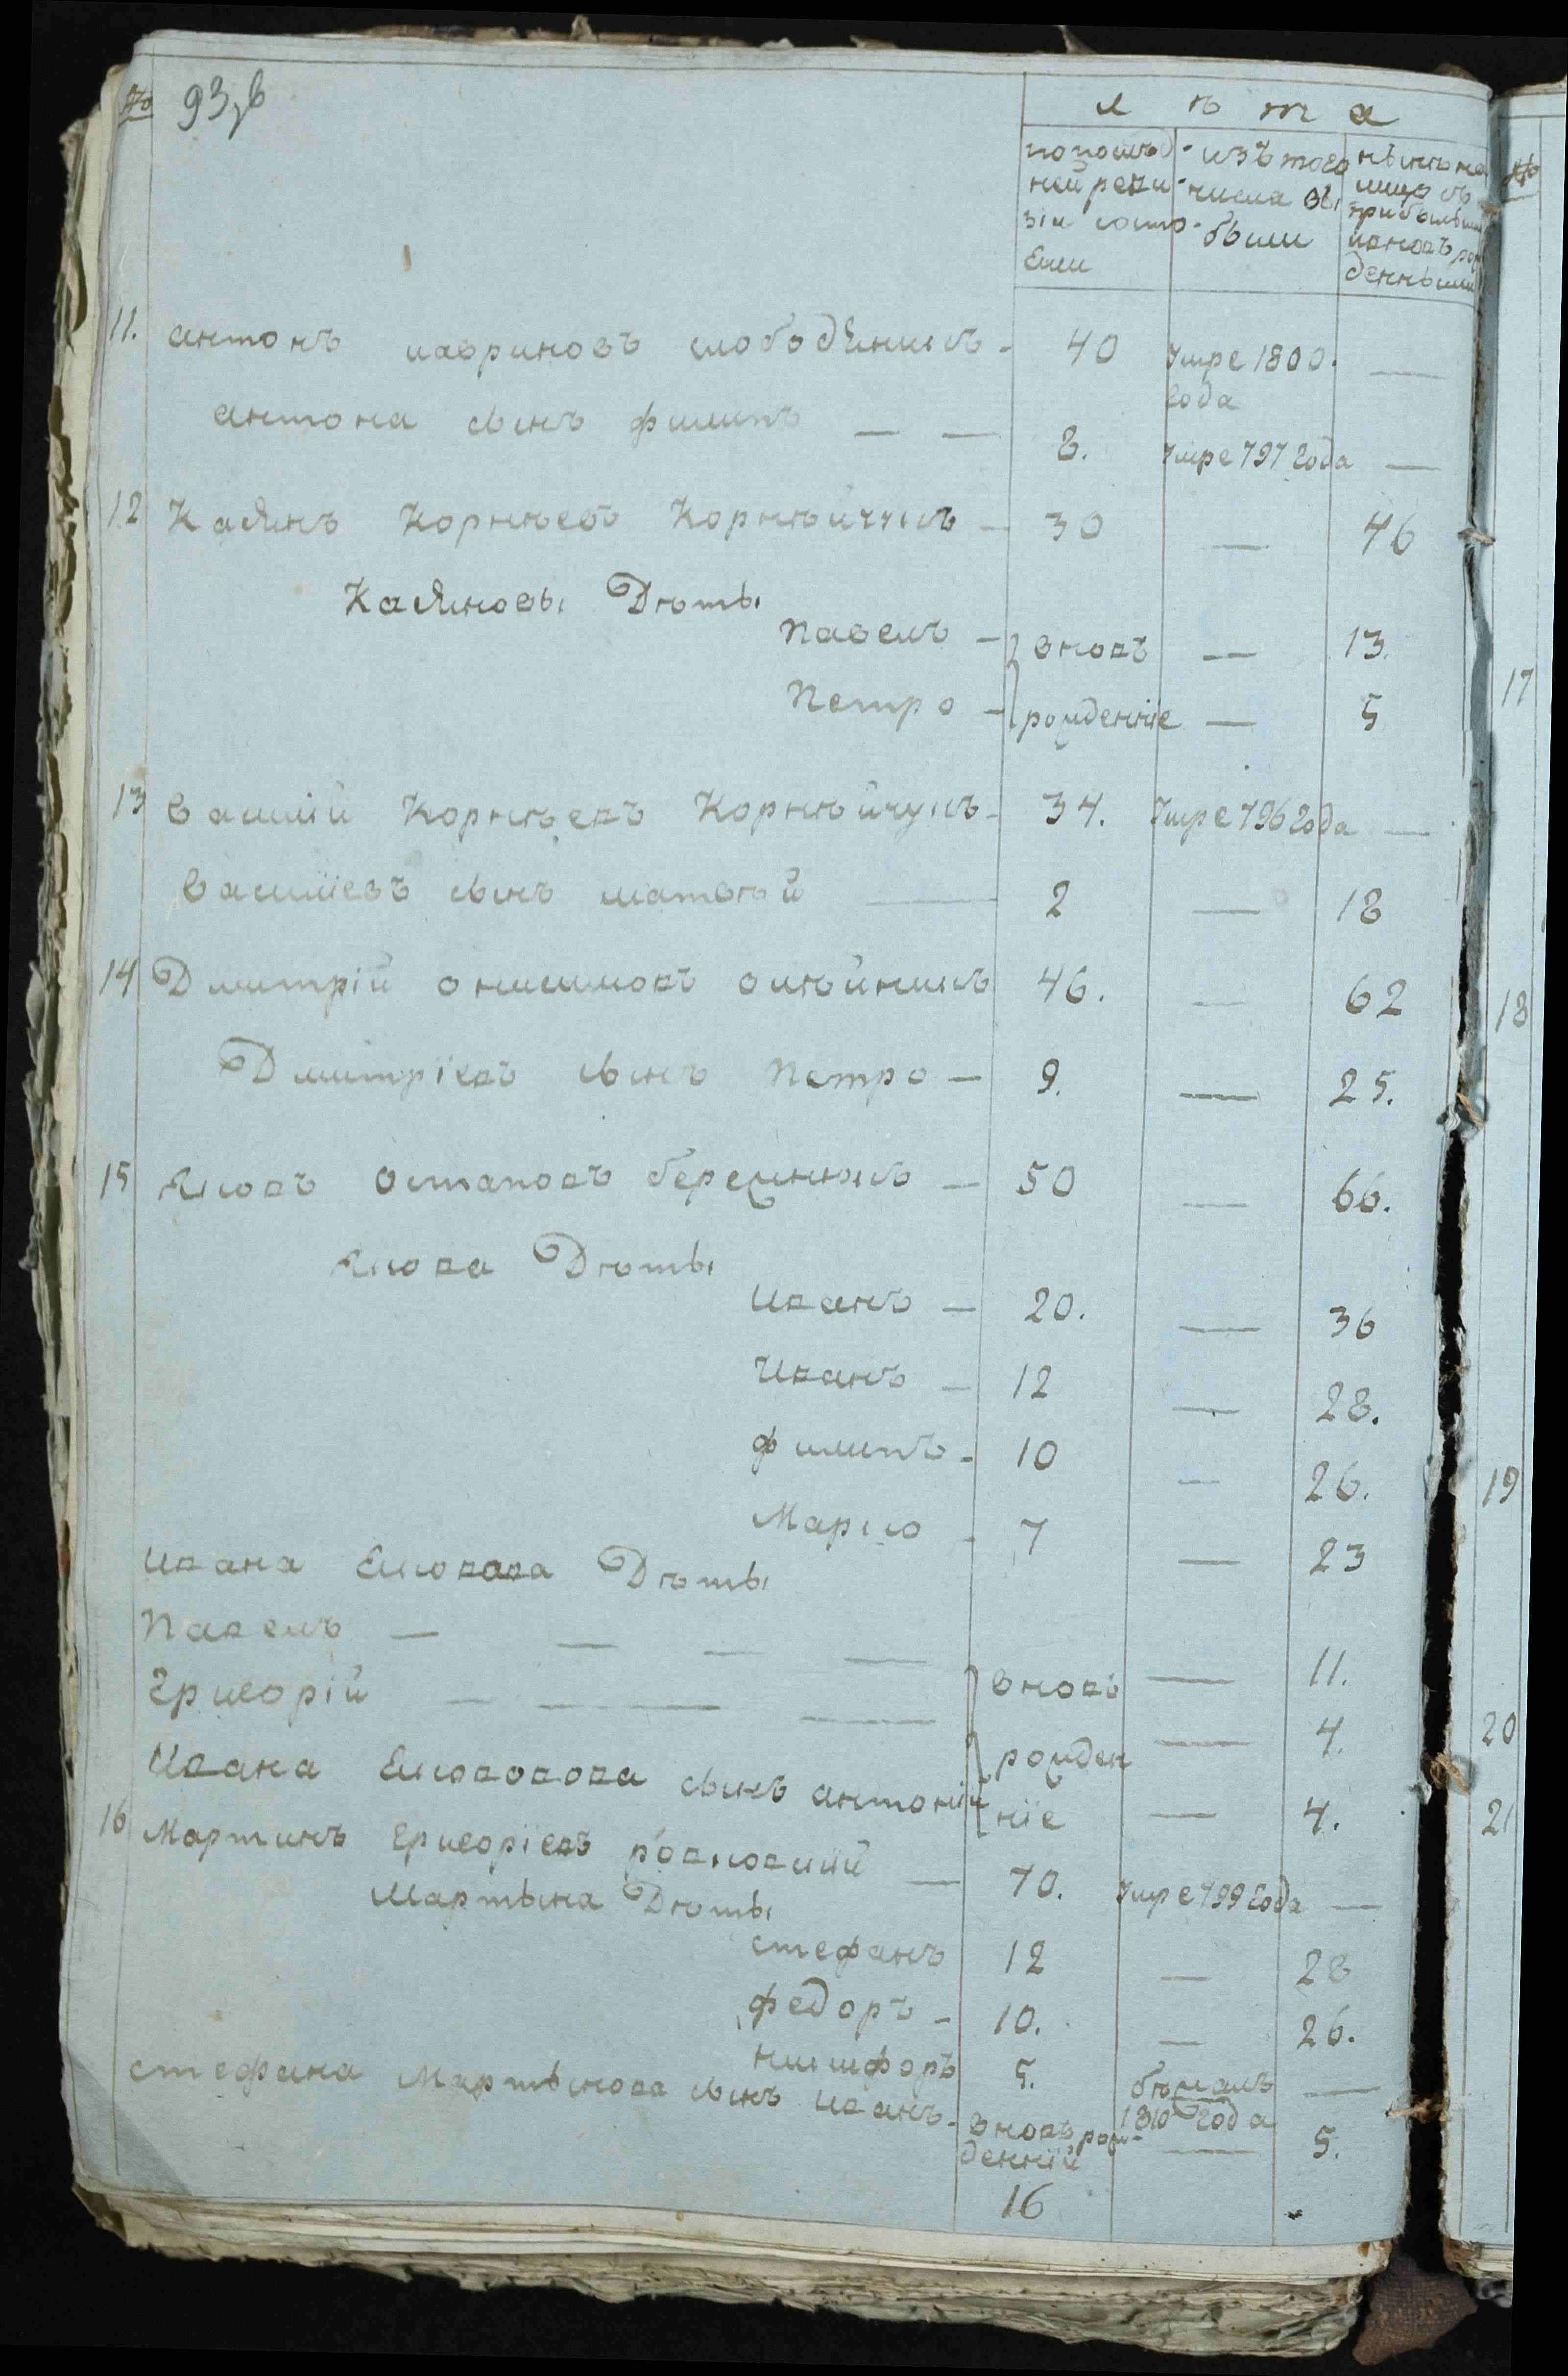 № 93,в
лѣта
по послѣд-
ней реви-
зіи состо-
яли
изъ того
числа вы
были
нынѣ на
лицо съ
прибылыми
и вновь рож
денными
№
11. антонъ лавриновъ слободяникъ - 40 умре 1800. —
года
антона сынъ филипъ — — 8. умре 797 года —
12 Касянъ Корнѣевъ Корнѣйчукъ - 30 — 46
Касяновы Дѣты
павелъ - вновь — 13.
петро - рожденніе — 5
17
13 василій Корнѣевъ Корнѣйчукъ - 34. умре 796 года —
василіевъ сынъ матвѣй — 2 — 18
14 Дмитрій онисимовъ олѣйникъ 46. — 62
18
Дмитріевъ сынъ петро — 9. — 25.
15 Яковъ Остаповъ бережнюкъ — 50 — 66.
Якова Дѣты
иванъ — 20. — 36
иванъ — 12 — 28.
филипъ - 10 — 26.
19
Марко - 7 — 23
ивана Яковова Дѣты
павелъ — — — — вновь — 11.
григорій — — — рожден — 4.
20
ивана Яковова сынъ антоній ніе — 4.
21
16 Мартинъ григоріевъ — 70. умре 799 года —
Мартына Дѣты
стефанъ 12 — 28
федоръ - 10. — 26.
никифоръ 5. бѣжалъ —
1810 года
стефана Мартынова сынъ иванъ - вновь рож-
денній — 5.
16